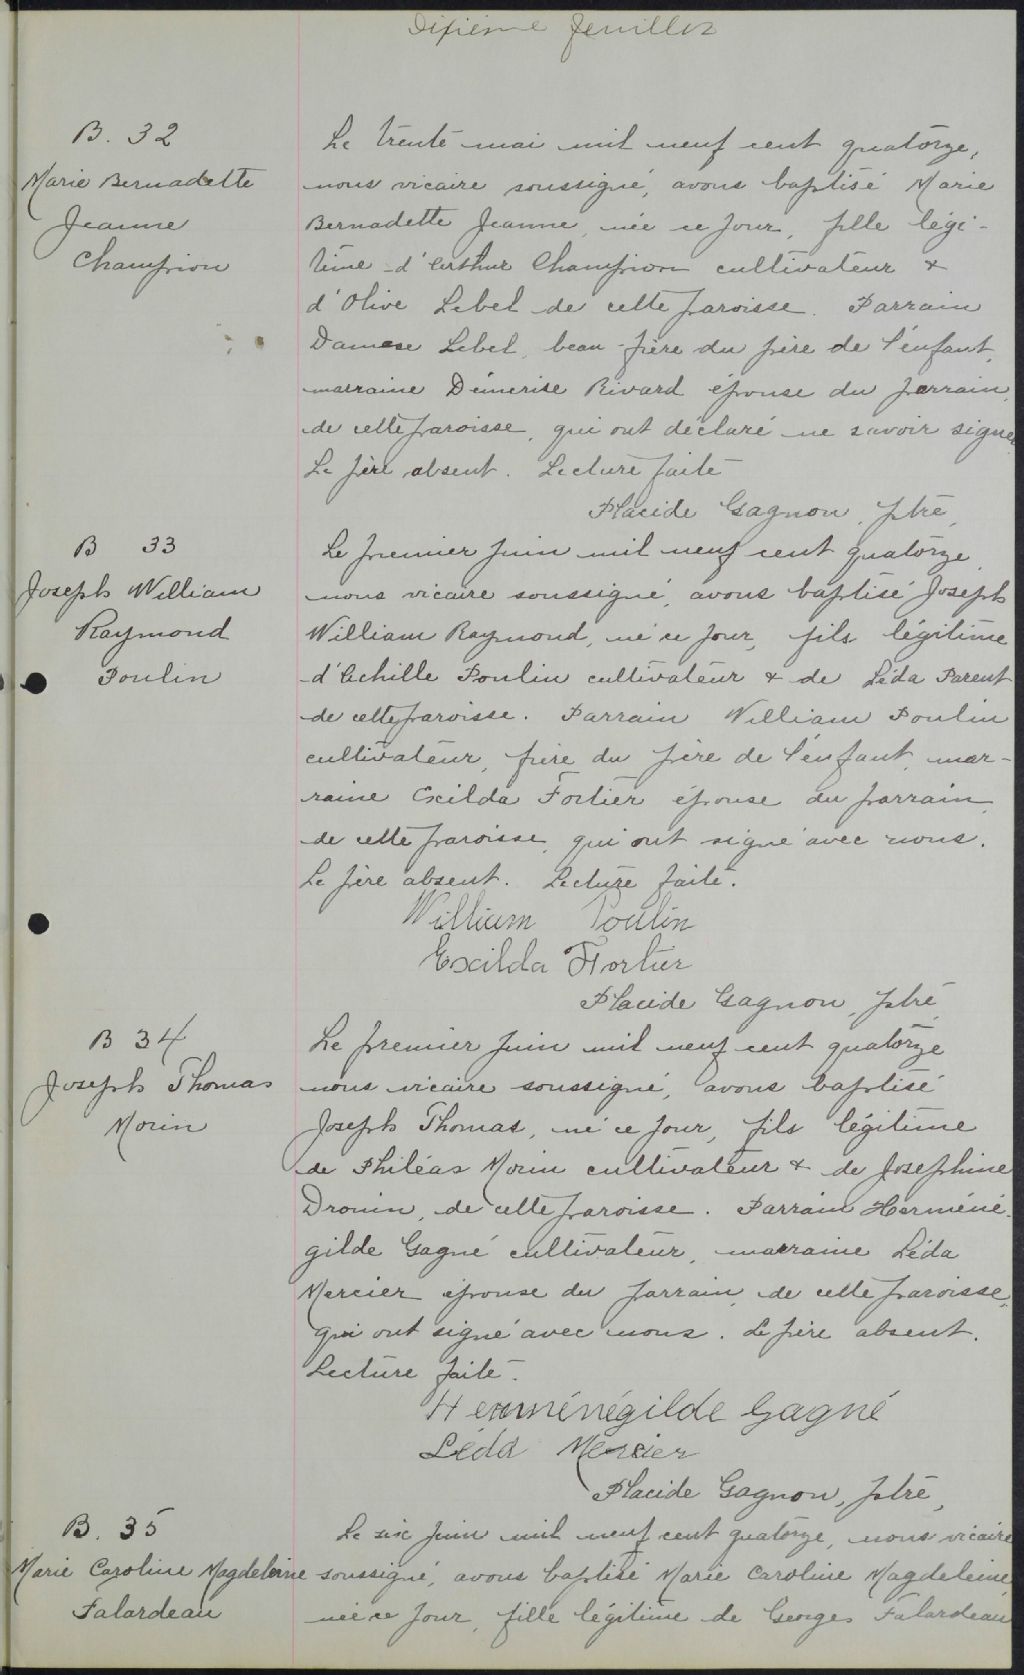 Dixième feuillet
B. 32
Marie Bernadette
Jeanne
Champion
Le trente mai mil neuf cent quatorze,
nous vicaire soussigné, avons baptisé Marie
Bernadette Jeanne, née ce jour, fille légi-
time d'Arthur Champion cultivateur &
d'Olive Lebel de cette paroisse. Parrain
Damase Lebel, beau-frère du père de l'enfant,
marraine Démerise Rivard épouse du parrain,
de cette paroisse, qui ont déclaré ne savoir signer
Le père absent. Lecture faite
Placide Gagnon, ptre,
B 33
Joseph William
Raymond
Poulin
Le premier juin mil neuf cent quatorze
nous vicaire soussigné, avons baptisé Joseph
William Raymond, né ce jour, fils légitime
d'Achille Poulin cultivateur & de Léda Parent
de cette paroisse. Parrain William Poulin
cultivateur, frère du père de l'enfant, mar-
raine Exilda Fortier épouse du parrain,
de cette paroisse, qui ont signé avec nous.
Le père absent. Lecture faite.
William Poulin
Exilda Fortier
Placide Gagnon, ptre,
B 34
Joseph Thomas
Morin
Le premier juin mil neuf cent quatorze
nous vicaire soussigné, avons baptisé
Joseph Thomas, né ce jour, fils légitime
de Philéas Morin cultivateur & de Josephine
Drouin, de cette paroisse. Parrain Herméné-
gilde Gagné cultivateur, marraine Léda
Mercier épouse du parrain, de cette paroisse,
qui ont signé avec nous. Le père absent.
Lecture faite.
Herménégilde Gagné
Léda Mercier
Placide Gagnon, ptre,
B. 35
Marie Caroline Magdeleine
Falardeau
Le six juin mil neuf cent quatorze, nous vicaire
soussigné, avons baptisé Marie Caroline Magdeleine,
née ce jour, fille légitime de Georges Falardeau